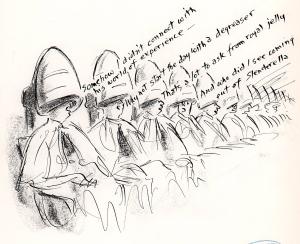 Somehow I didn't connect with
this world of experience —
Why not start the day with a degreaser
That's a lot to ask from royal jelly
And who did I see coming
out of Slenderella